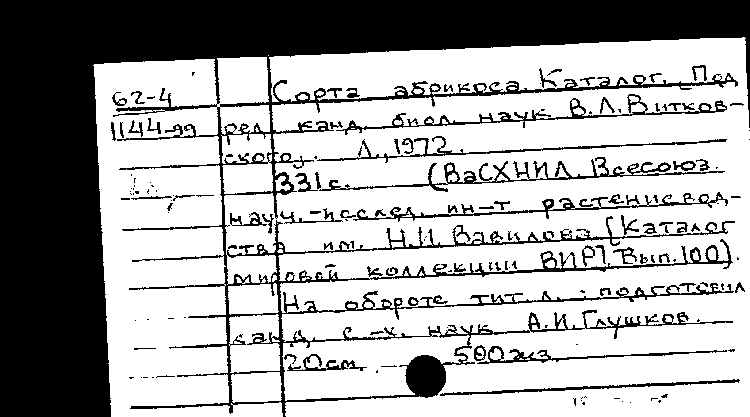 62-4
1144-99
Сорта абрикоса. Каталог. Под
ред. канд. биол. наук В.Л.Витков-
ского. Л., 1972.
331с. (ВаСХНИЛ. Всесоюз.
науч.-исслед. ин-т растениевод-
ства им. Н.И.Вавилова [Каталог
мировой коллекции ВИР]. Вып.100).
На обороте тит.л.: подготовил
канд. с.-х. наук А.И.Глушков.
20см. 500экз.